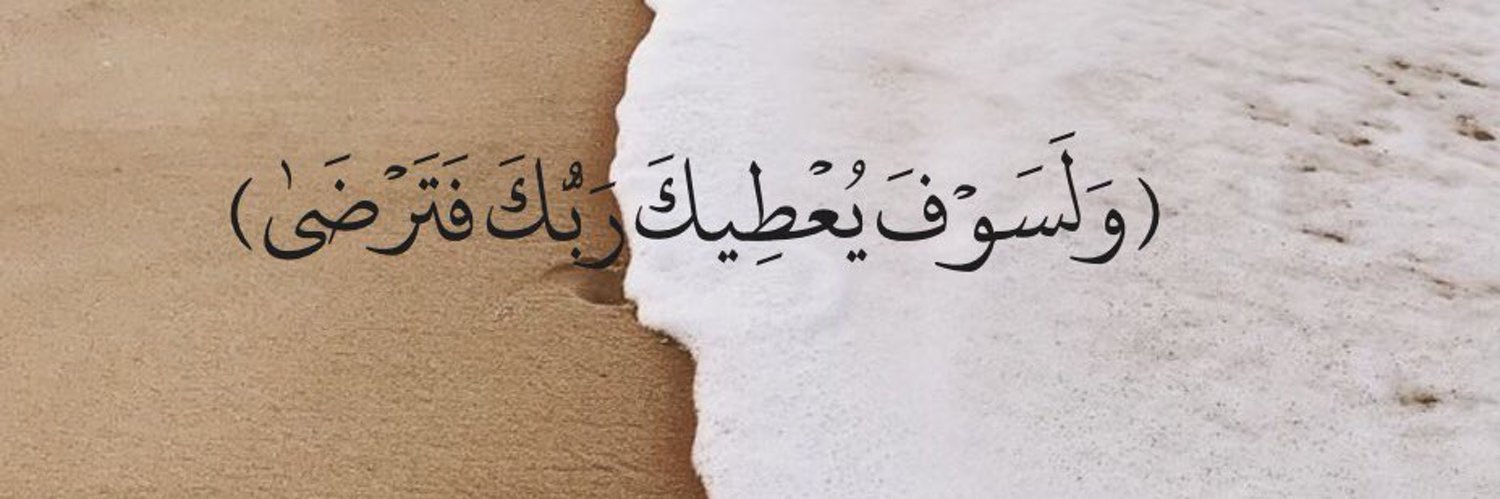 (وَلَسَوۡفَ يُعۡطِيكَ رَبُّكَ فَتَرۡضَىٰ)